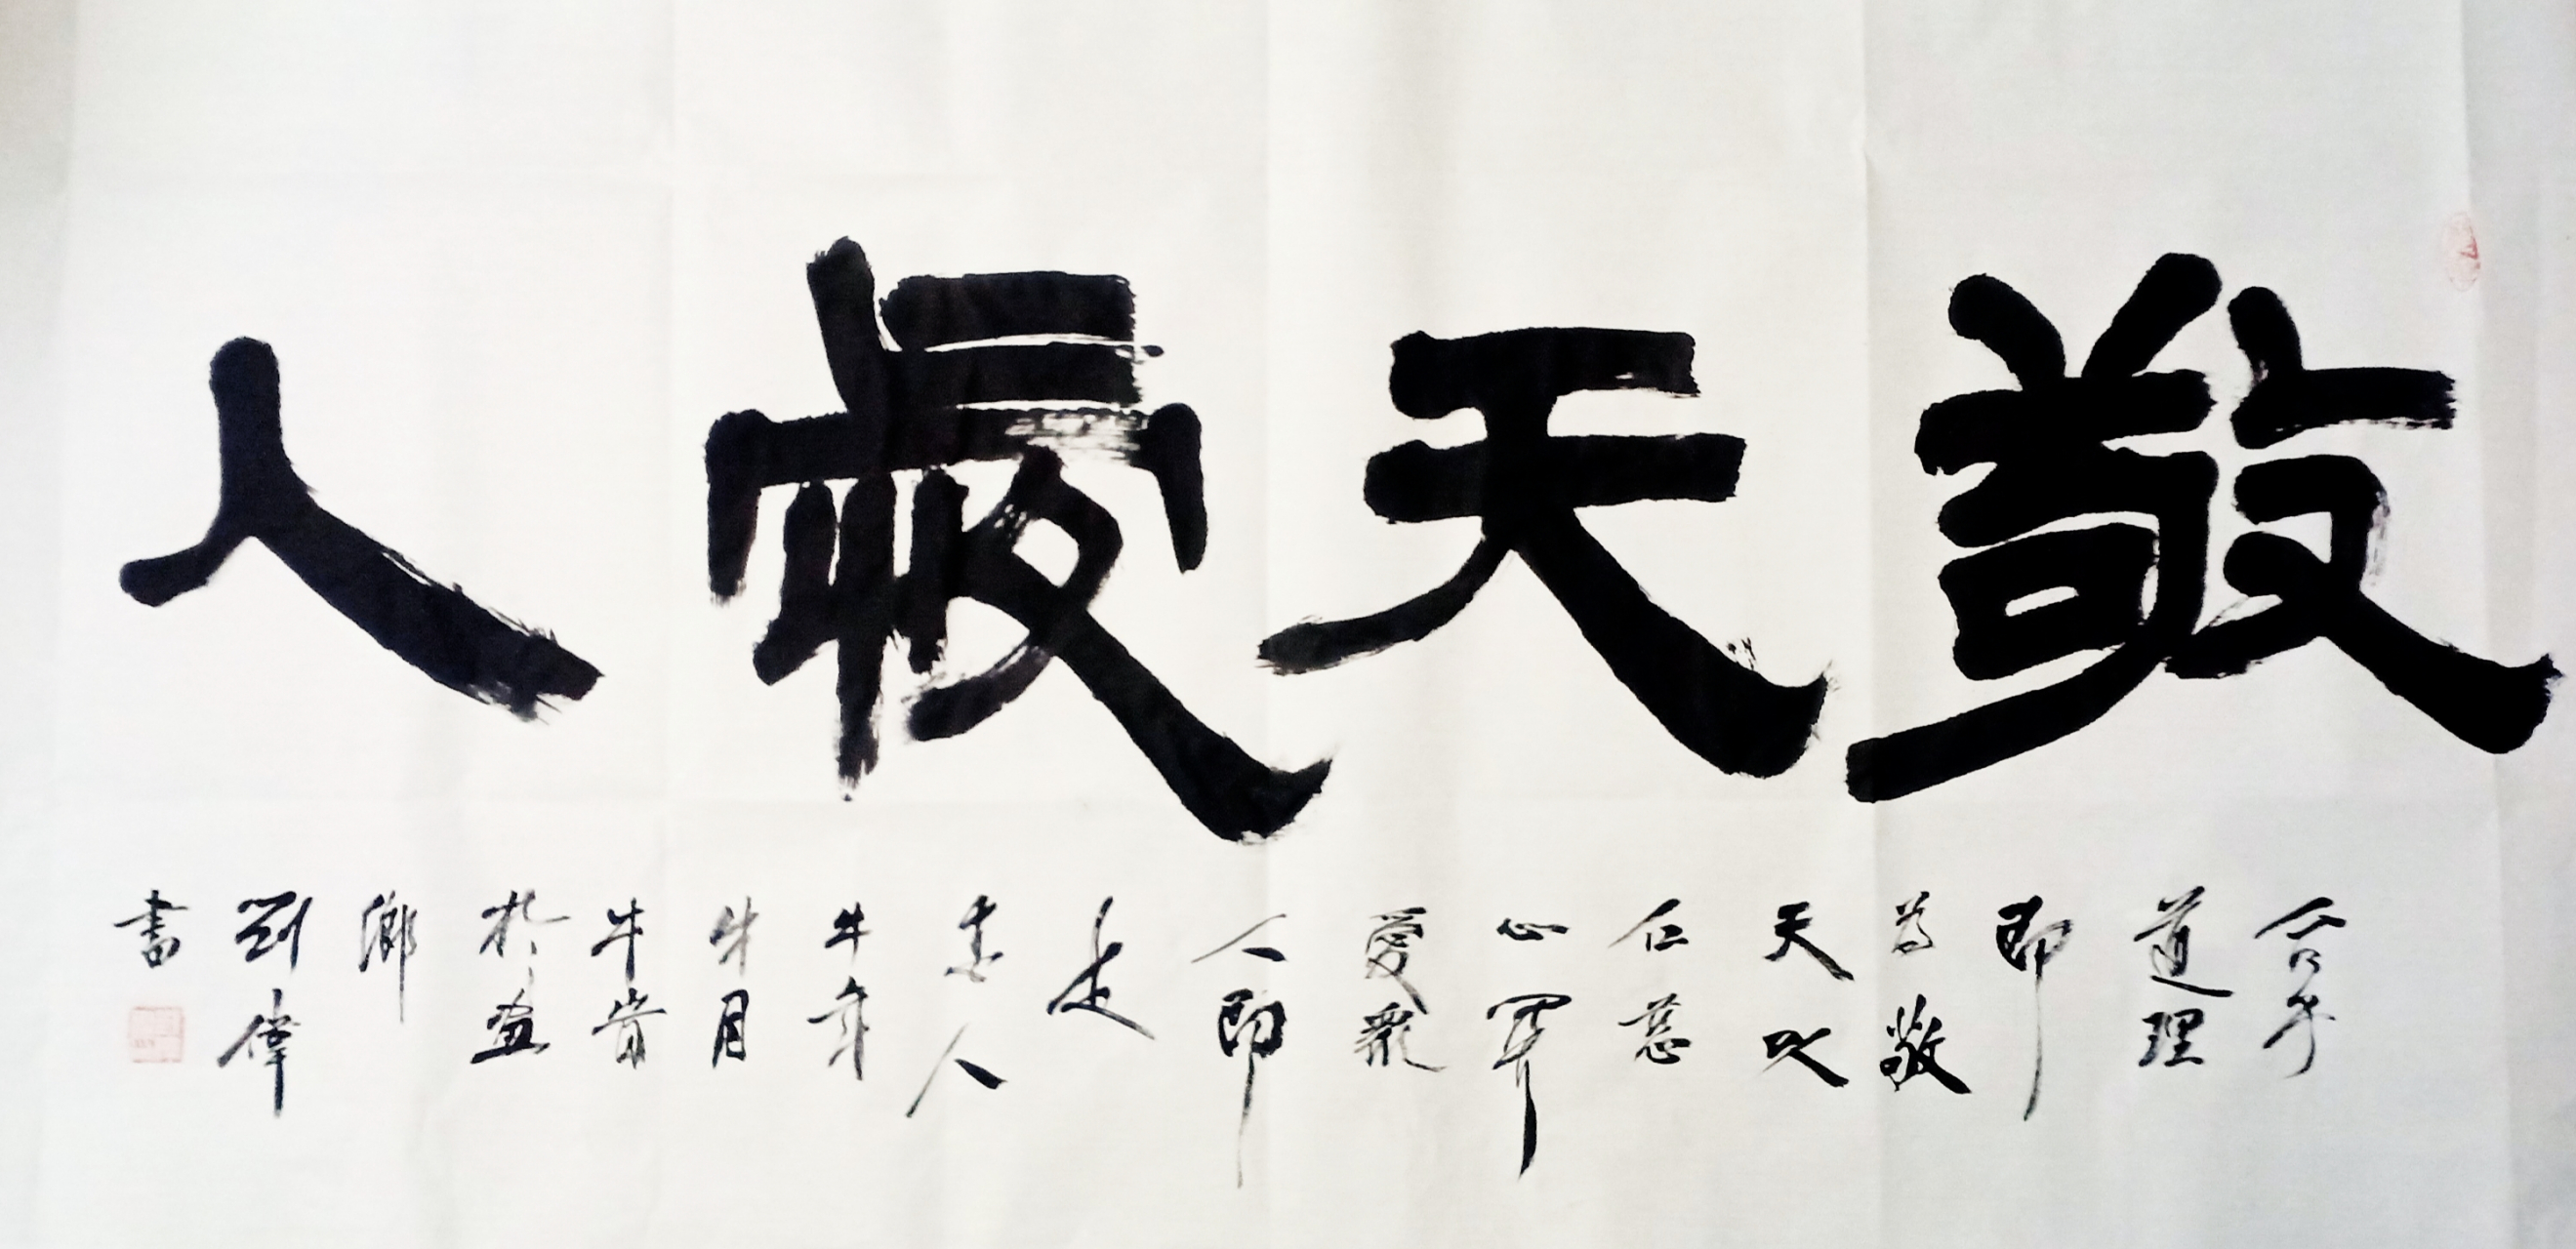 敬天愛人
合乎
道理
即
為敬
天以
仁慈
心軍
愛眾
人即
是
愛人
牛年
牛月
牛嵗
於畫
鄉
劉偉
書